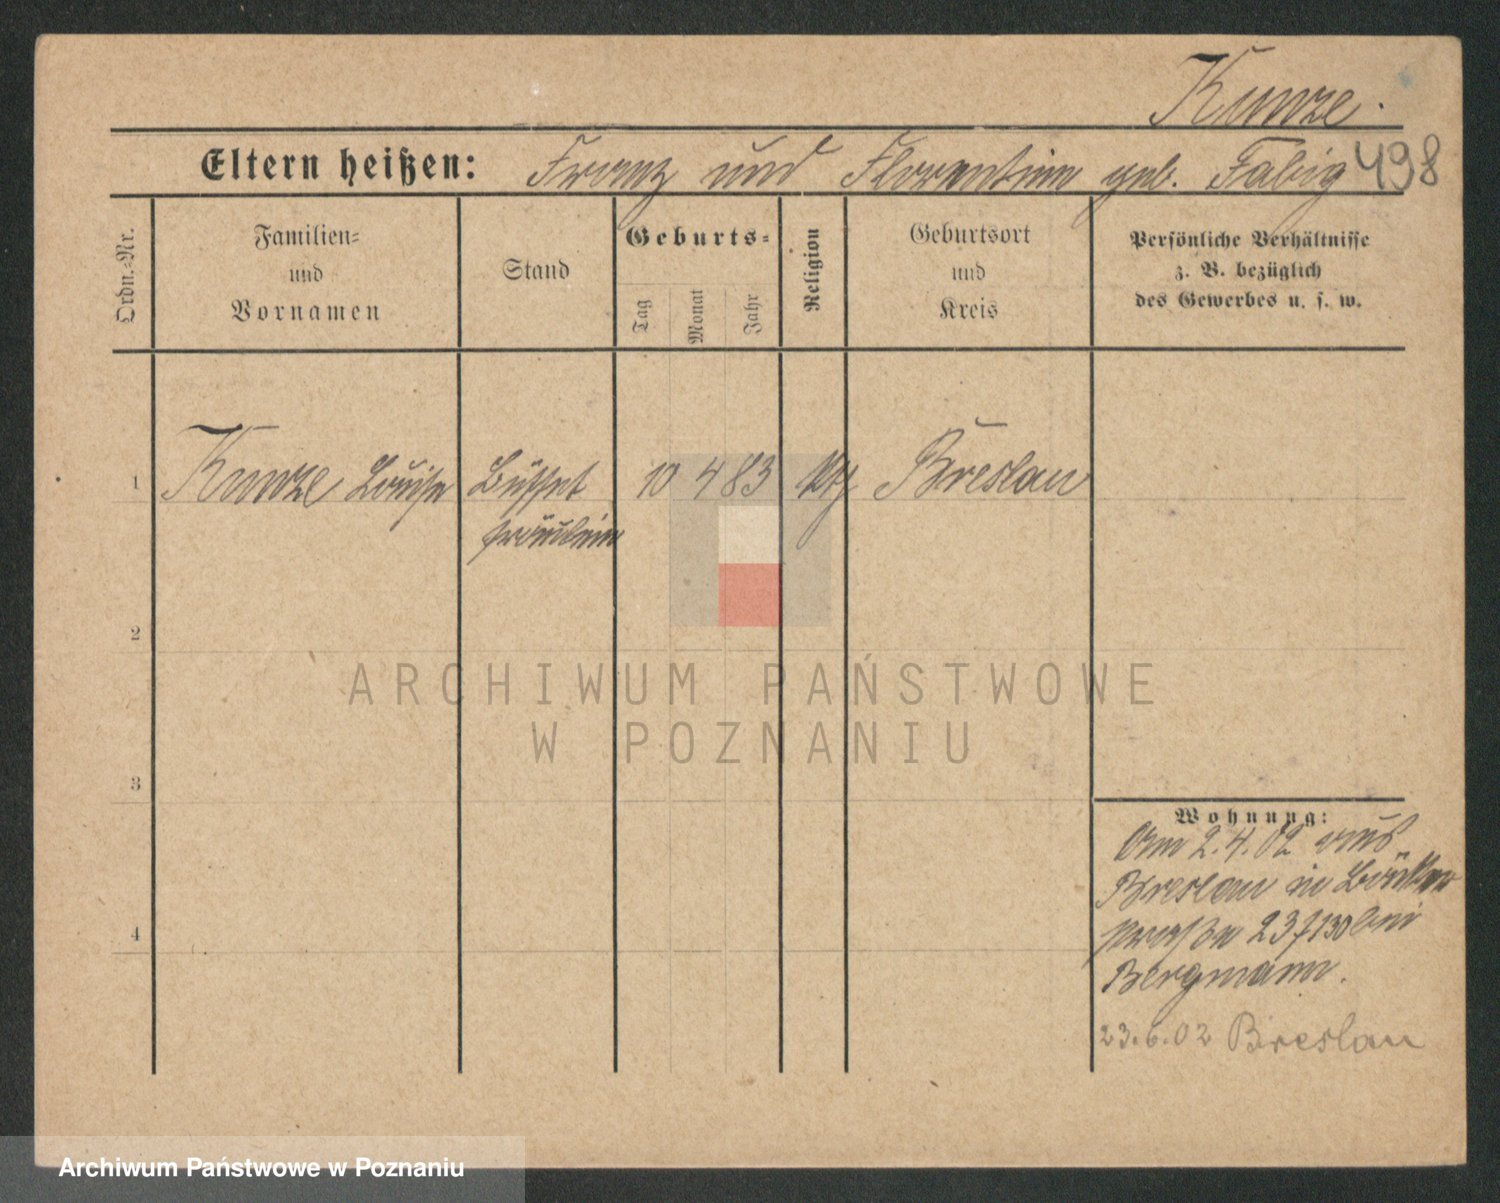 Kunze.
Eltern heißen: Franz und Florentine geb. Fabig 498
Ordn.-Nr.
Familien-
und
Vornamen
Stand
Geburts-
Tag
Monat
Jahr
Religion
Geburtsort
und
Kreis
Persönliche Verhältnisse
z. B. bezüglich
des Gewerbes u. s. w.
1 Kunze Louise Büffet 10 4 83 Breslau
fräulein
2
ARCHIWUM PAŃSTWOWE
W POZNANIU
3
Wohnung:
Am 2.4.02 aus
Breslau in Bäcker
straße 23 bei
Bergmann.
4
23.6.02 Breslau
Archiwum Państwowe w Poznaniu